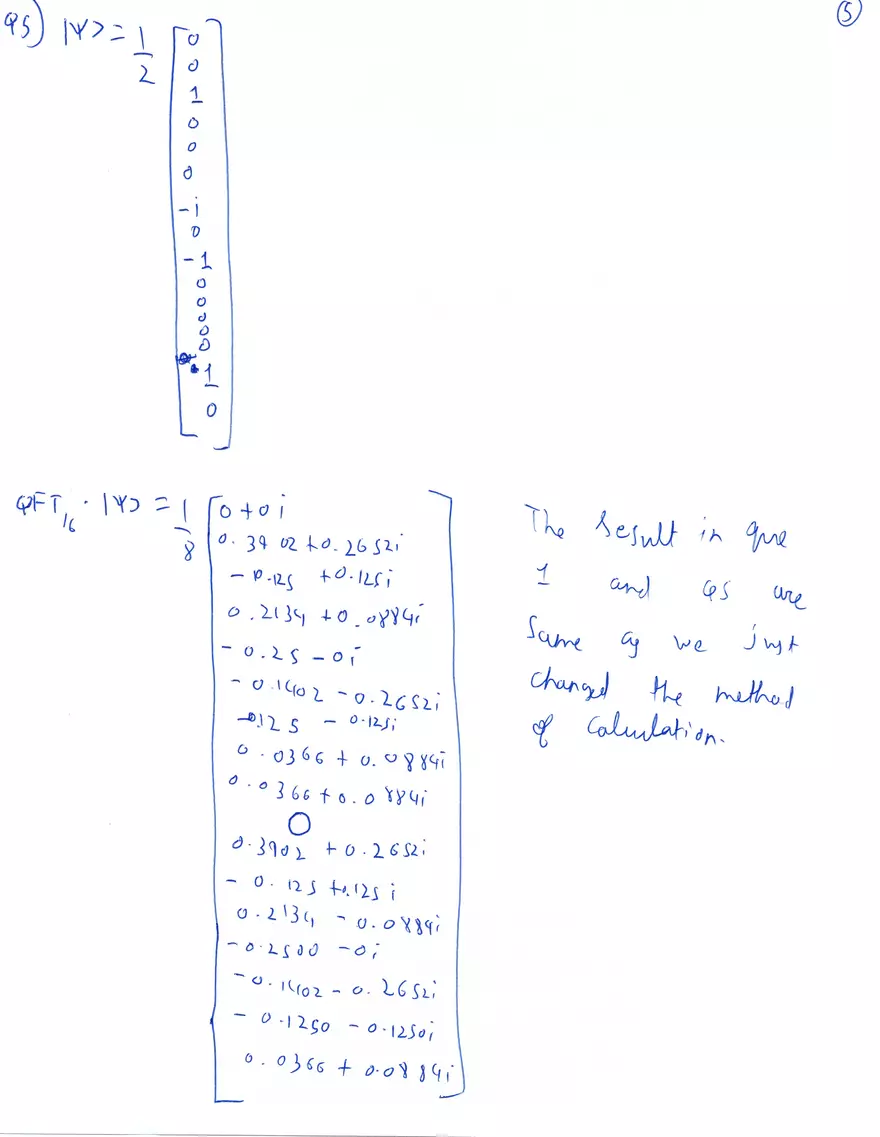 Q5) |Ψ> = 1/2 [
0
0
1
0
0
0
-i
0
-1
0
0
0
0
0
1
0
]
5
QFT16 · |Ψ> = 1/8 [ 0 + 0i
0.3902 + 0.2652i
- 0.125 + 0.125i
0.2134 + 0.0884i
- 0.25 - 0i
- 0.1402 - 0.2652i
- 0.125 - 0.125i
0.0366 + 0.0884i
0.0366 + 0.0884i
0
0.3902 + 0.2652i
- 0.125 + 0.125i
0.2134 - 0.0884i
- 0.2500 - 0i
- 0.1402 - 0.2652i
- 0.1250 - 0.1250i
0.0366 + 0.0884i ]
The result in que
1 and Q5 are
Same as we just
changed the method
of calculation.